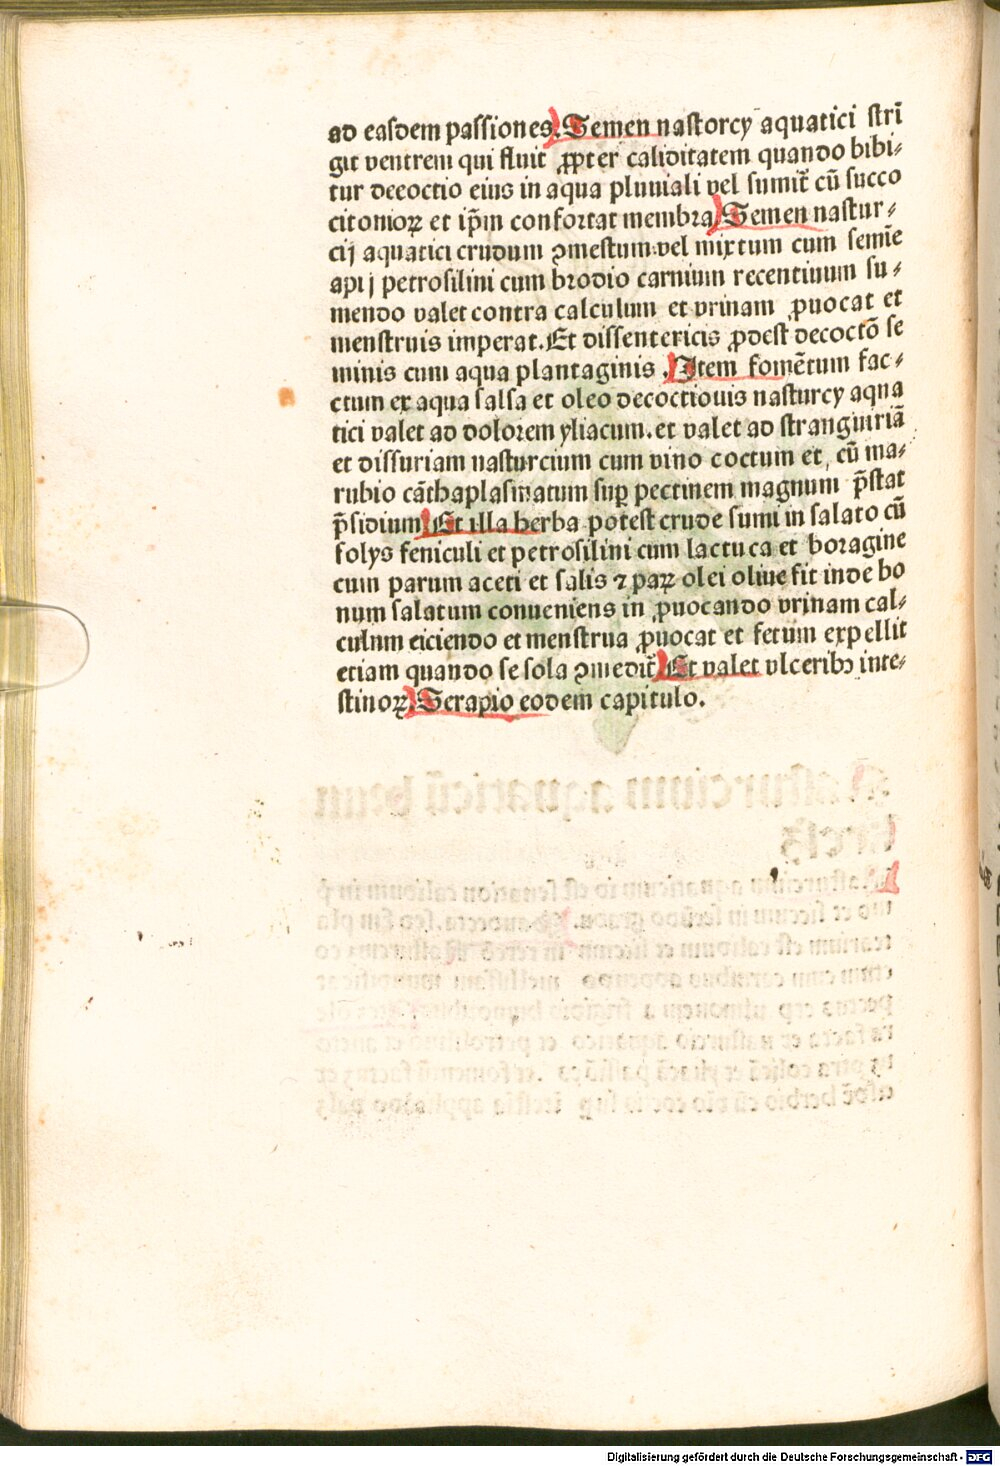 ad easdem passiones. Semen nastorcy aquatici stri᷃
git ventrem qui fluit ꝓpter caliditatem quando bibi⸗
tur decoctio eius in aqua pluuiali vel sumit᷑ cū succo
citonioꝝ et ip̄m confortat membra Semen nastur⸗
cij aquatici crudum ꝯmestum vel mixtum cum semīe
apij petrosilini cum brodio carnium recentiuum su⸗
mendo valet contra calculum et vrinam ꝓuocat et
menstruis imperat. Et dissentericis ꝓdest decoctō se
minis cum aqua plantaginis . Item fomētum fac⸗
ctum ex aqua salsa et oleo decoctiouis nasturcy aqua
tici valet ad dolorem yliacum. et valet ad stranguiriā
et dissuriam nasturcium cum vino coctum et, cū ma⸗
rubio cāthaplasmatum suꝑ pectinem magnum p̄stat
p̄sidium Et illa herba potest crude sumi in salato cū
folys feniculi et petrosilini cum lactuca et boragine
cum parum aceti et salis ⁊ paꝝ olei oliue fit inde bo
num salatum conueniens in ꝓuocando vrinam cal⸗
culnm eiciendo et menstrua ꝓuocat et fetum expellit
etiam quando se sola ꝯmedit᷑ Et valet vlceribꝫ inte⸗
stinoꝝ. Serapio eodem capitulo.
Digitalisierung gefördert durch die Deutsche Forschungsgemeinschaft - DFG